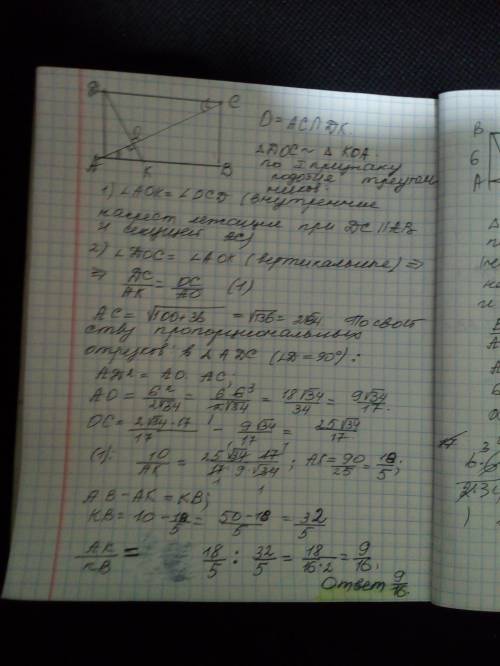 D
C
O
A
K
B
O = AC ∩ DK.
△DOC ~ △ KOA
по I признаку
подобия треуголь
ников.
1) ∠AOK = ∠OCD (внутренние
накрест лежащие при DC || AB
и секущей AC)
2) ∠DOC = ∠AOK (вертикальные) ⇒
⇒ DC/AK = OC/AO (1)
AC = √100+36 = √136 = 2√34 По свой
ству пропорциональных
отрезков в △ADC (∠D = 90°):
AD² = AO · AC
AO = 6²/2√34 = 6·6³/2√34 = 18√34/34 = 9√34/17.
OC = 2√34·17/17 - 9√34/17 = 25√34/17
(1): 10/AK = 25√34·17/17·9√34; AK = 90/25 = 18/5;
AB - AK = KB;
KB = 10 - 18/5 = 50-18/5 = 32/5
AK/KB = 18/5 : 32/5 = 18/16·2 = 9/16;
Ответ 9/16.
B
6
A